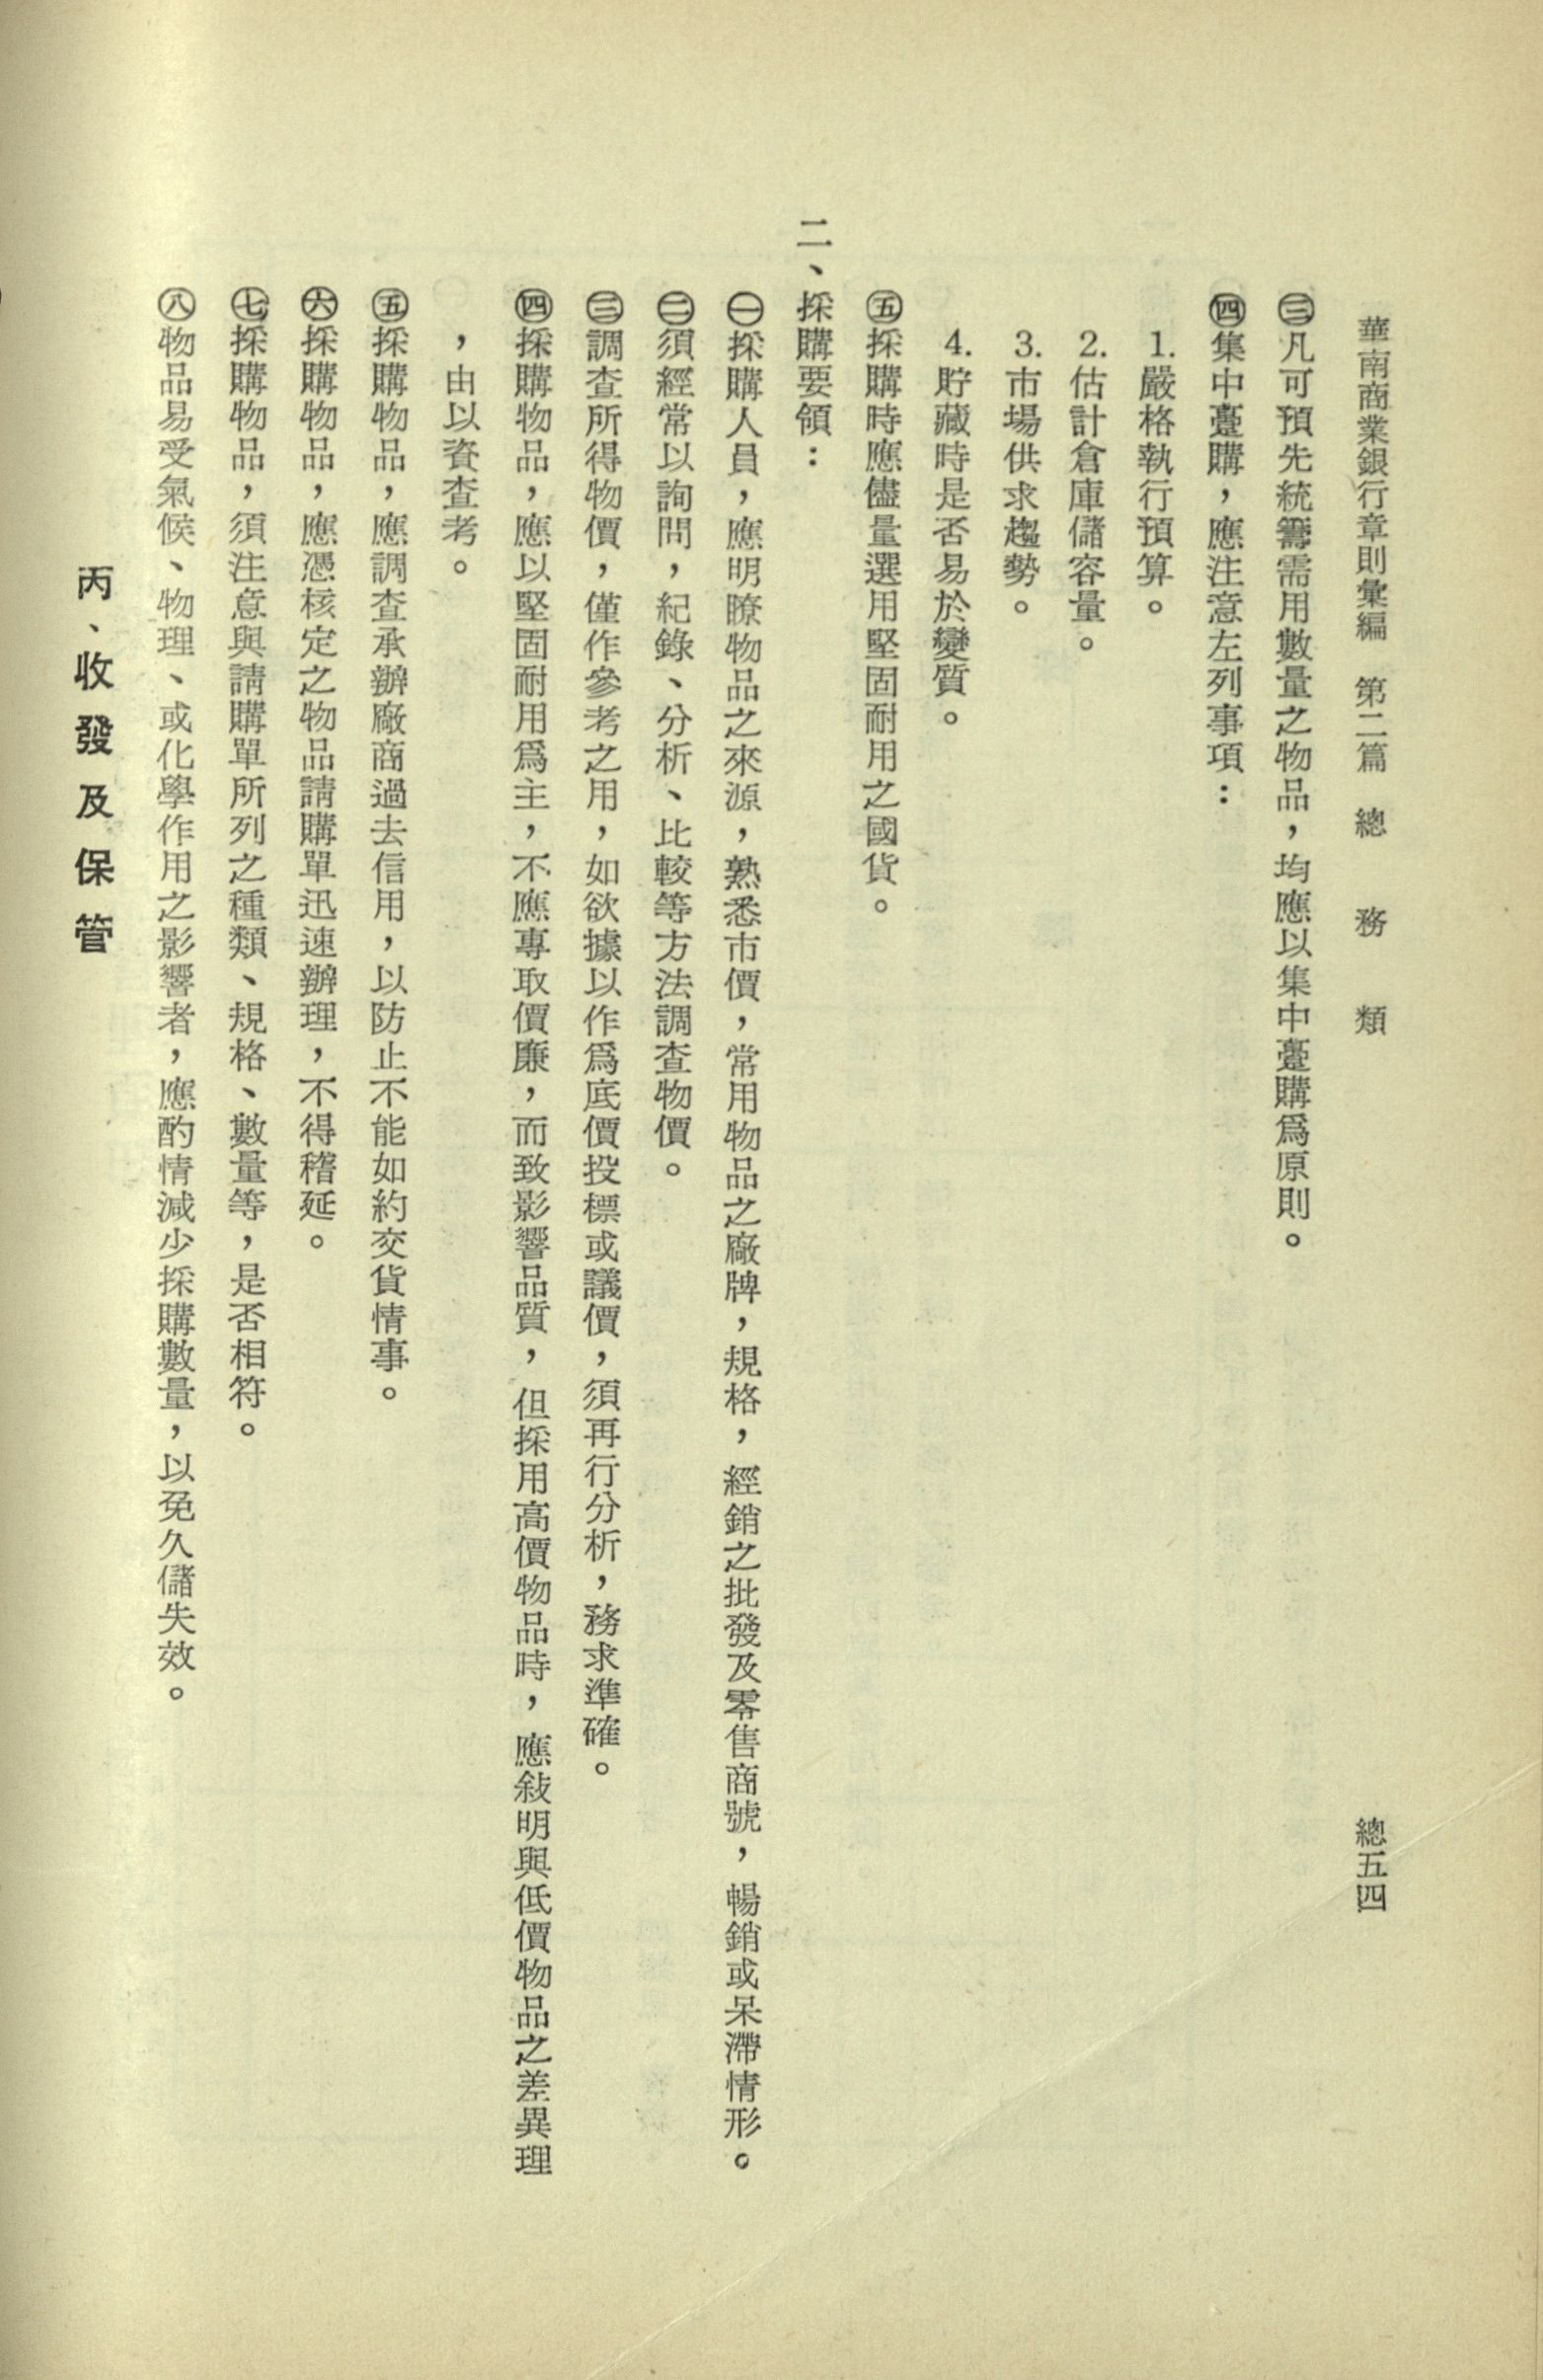 華南商業銀行章則彙編　第二篇　總　務　類
總五四
㊂凡可預先統籌需用數量之物品，均應以集中躉購爲原則。
㊃集中躉購，應注意左列事項：
1.嚴格執行預算。
2.估計倉庫儲容量。
3.市場供求趨勢。
4.貯藏時是否易於變質。
㊄採購時應儘量選用堅固耐用之國貨。
二、採購要領：
㊀採購人員，應明瞭物品之來源，熟悉市價，常用物品之廠牌，規格，經銷之批發及零售商號，暢銷或呆滯情形。
㊁須經常以詢問，紀錄、分析、比較等方法調查物價。
㊂調查所得物價，僅作參考之用，如欲據以作爲底價投標或議價，須再行分析，務求準確。
㊃採購物品，應以堅固耐用爲主，不應專取價廉，而致影響品質，但採用高價物品時，應敍明與低價物品之差異理
，由以資查考。
㊄採購物品，應調查承辦廠商過去信用，以防止不能如約交貨情事。
㊅採購物品，應憑核定之物品請購單迅速辦理，不得稽延。
㊆採購物品，須注意與請購單所列之種類、規格、數量等，是否相符。
㊇物品易受氣候、物理、或化學作用之影響者，應酌情減少採購數量，以免久儲失效。
丙、收發及保管